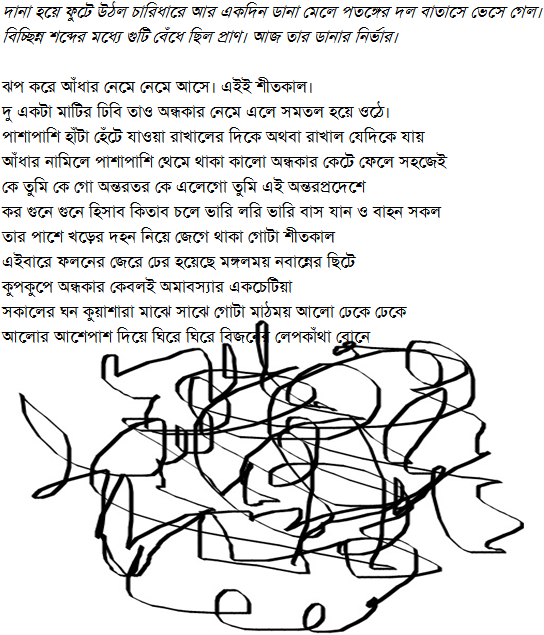 দানা হয়ে ফুটে উঠল চারিধারে আর একদিন ডানা মেলে পতঙ্গের দল বাতাসে ভেসে গেল।
বিচ্ছিন্ন শব্দের মধ্যে গুটি বেঁধে ছিল প্রাণ। আজ তার ডানার নির্ভার।
ঝপ করে আঁধার নেমে নেমে আসে। এইই শীতকাল।
দু একটা মাটির ঢিবি তাও অন্ধকার নেমে এলে সমতল হয়ে ওঠে।
পাশাপাশি হাঁটা হেঁটে যাওয়া রাখালের দিকে অথবা রাখাল যেদিকে যায়
আঁধার নামিলে পাশাপাশি থেমে থাকা কালো অন্ধকার কেটে ফেলে সহজেই
কে তুমি কে গো অন্তরতর কে এলেগো তুমি এই অন্তরপ্রদেশে
কর গুনে গুনে হিসাব কিতাব চলে ভারি লরি ভারি বাস যান ও বাহন সকল
তার পাশে খড়ের দহন নিয়ে জেগে থাকা গোটা শীতকাল
এইবারে ফলনের জেরে ঢের হয়েছে মঙ্গলময় নবান্নের ছিটে
কুপকুপে অন্ধকার কেবলই অমাবস্যার একচেটিয়া
সকালের ঘন কুয়াশারা মাঝে সাঝে গোটা মাঠময় আলো ঢেকে ঢেকে
আলোর আশেপাশ দিয়ে ঘিরে ঘিরে বিজনের লেপকাঁথা বোনে